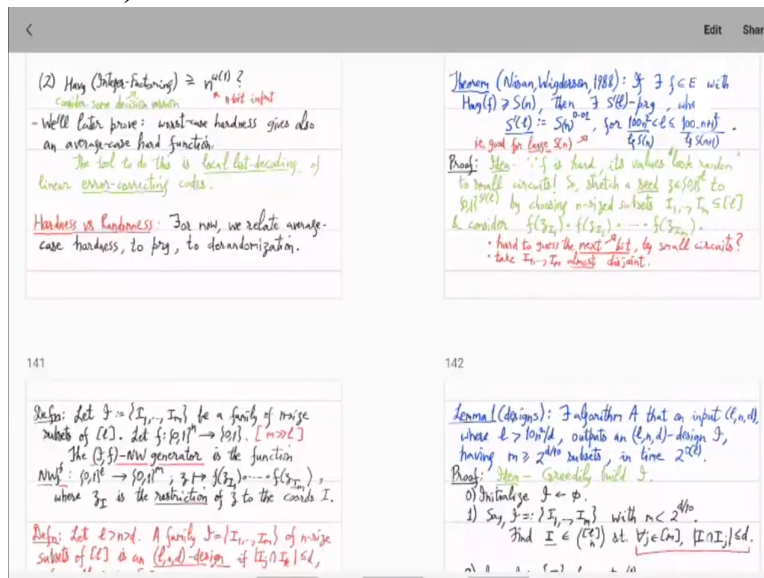 Edit Shar
(2) Havg (Integer-Factoring) ≥ n^ω(1) ?
consider some decision version
n-bit input
- We'll later prove: worst-case hardness gives also
an average-case hard function.
The tool to do this is local list-decoding of
linear error-correcting codes.
Hardness vs Randomness: For now, we relate average-
case hardness, to prg, to derandomization.
Theorem (Nisan, Wigderson, 1988): If ∃ f∈E with
Havg(f) ≥ S(n), then ∃ S'(ℓ)-prg, where
S'(ℓ) := S(n)^0.01, for 100n²/lg S(n) < ℓ ≤ 100.(n+1)²/lg S(n+1).
ie. good for large S(n)
Proof: Idea- ∵ f is hard, its values "look random"
to small circuits! So, stretch a seed z∈{0,1}^ℓ to
{0,1}^S'(ℓ) by choosing n-sized subsets I₁,..., Iₘ ⊆[ℓ]
& consider f(z_I₁)∘f(z_I₂)∘····∘f(z_Iₘ).
• hard to guess the next-bit, by small circuits?
• take I₁,..., Iₘ almost disjoint.
141
142
Defn: Let 𝓘 := {I₁,..., Iₘ} be a family of n-size
subsets of [ℓ]. Let f: {0,1}ⁿ → {0,1}. [m≫ℓ]
The (𝓘,f)-NW generator is the function
: {0,1}^ℓ → {0,1}^m ; z ↦ f(z_I₁)∘····∘f(z_Iₘ),
where z_I is the restriction of z to the coords I.
Defn: Let ℓ>n>d. A family 𝓘={I₁,..., Iₘ} of n-size
subsets of [ℓ] is an (ℓ,n,d)-design if |Iⱼ∩Iₖ|≤d,
Lemma 1 (designs): ∃ algorithm A that on input (ℓ,n,d),
where ℓ > 10n²/d, outputs an (ℓ,n,d)-design 𝓘,
having m ≥ 2^d/10 subsets, in time 2^O(ℓ).
Proof: Idea- Greedily build 𝓘.
0) Initialize 𝓘 ← ∅.
1) Say, 𝓘 = {I₁,..., Iₘ} with m < 2^d/10.
Find I ∈ ([ℓ] n) st. ∀j∈[m], |I∩Iⱼ|≤d.